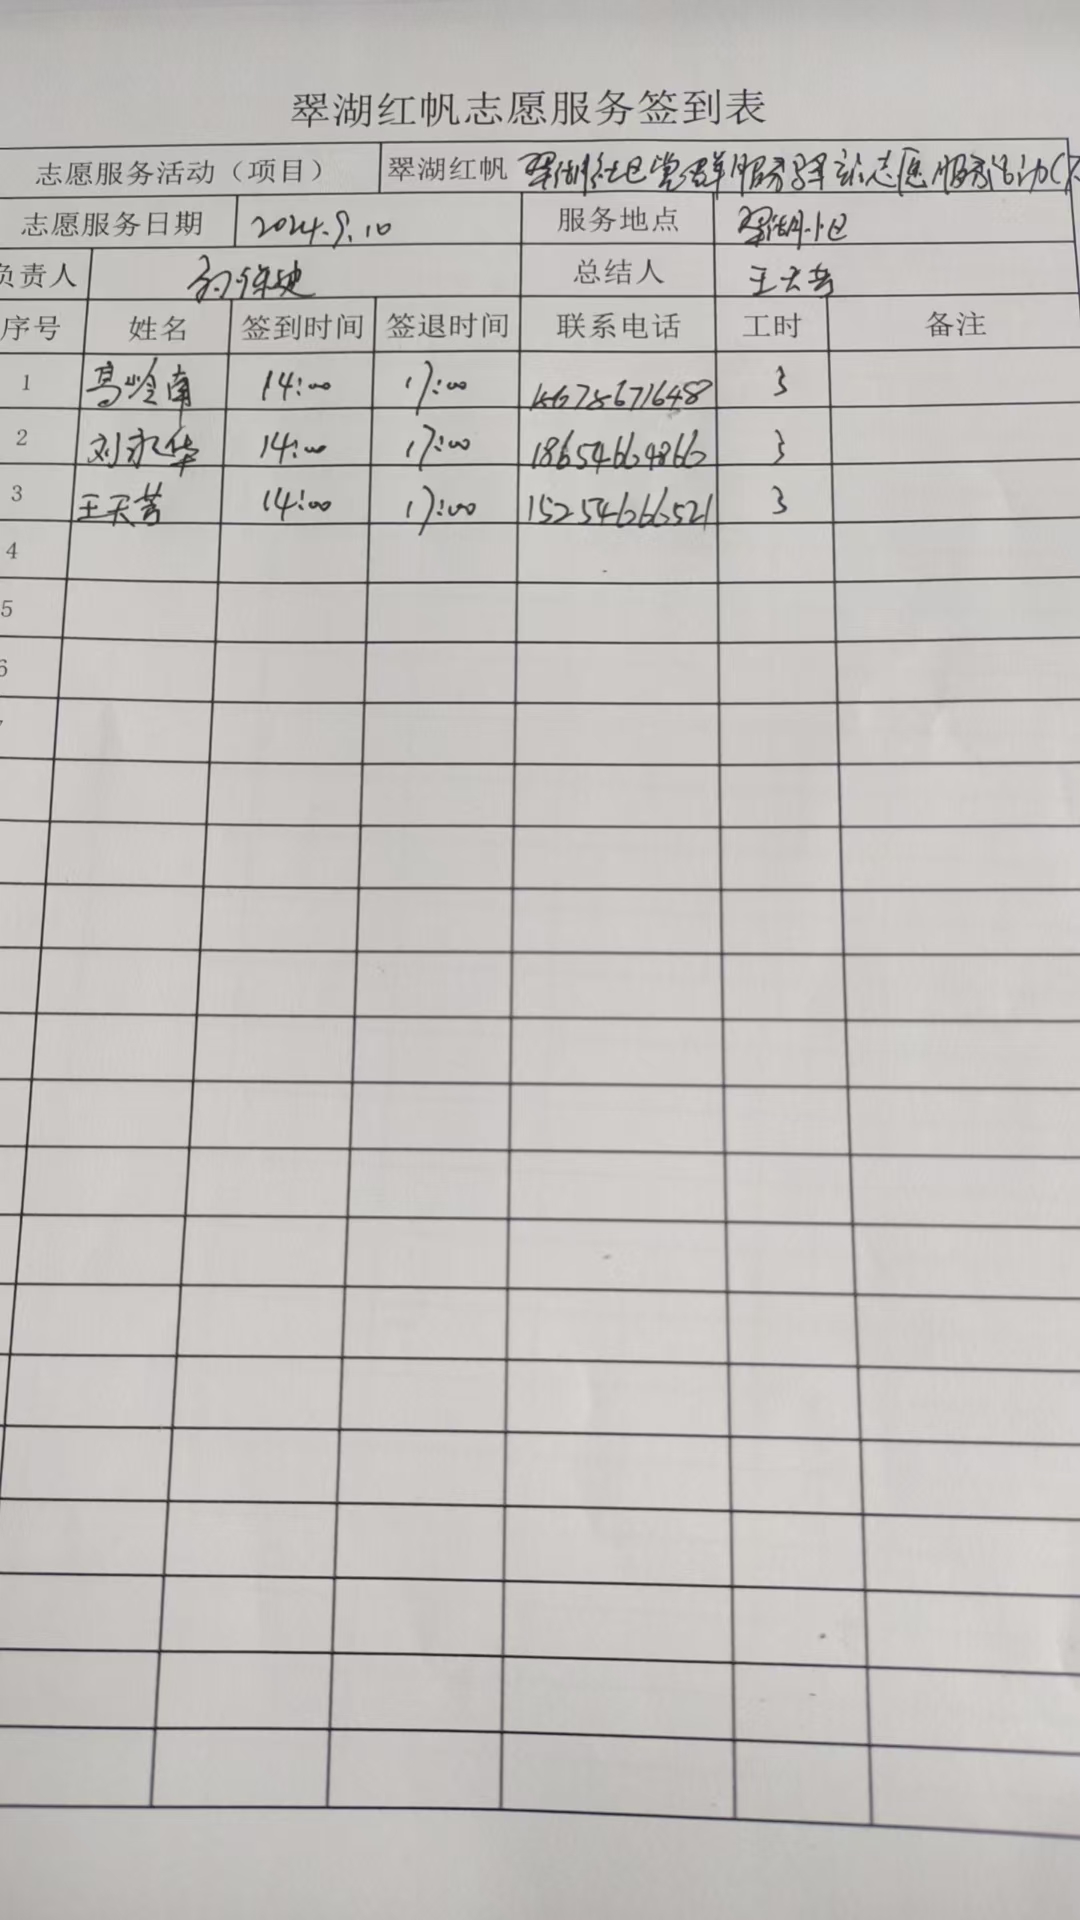 翠湖红帆志愿服务签到表
志愿服务活动（项目） 翠湖红帆 翠湖社区党群服务驿站志愿服务活动(
志愿服务日期 2024.9.10 服务地点 翠湖小区
负责人 总结人 王天芳
序号 姓名 签到时间 签退时间 联系电话 工时 备注
1 高岭南 14:00 17:00 3
2 刘永华 14:00 17:00 3
3 14:00 17:00 3
4
5
6